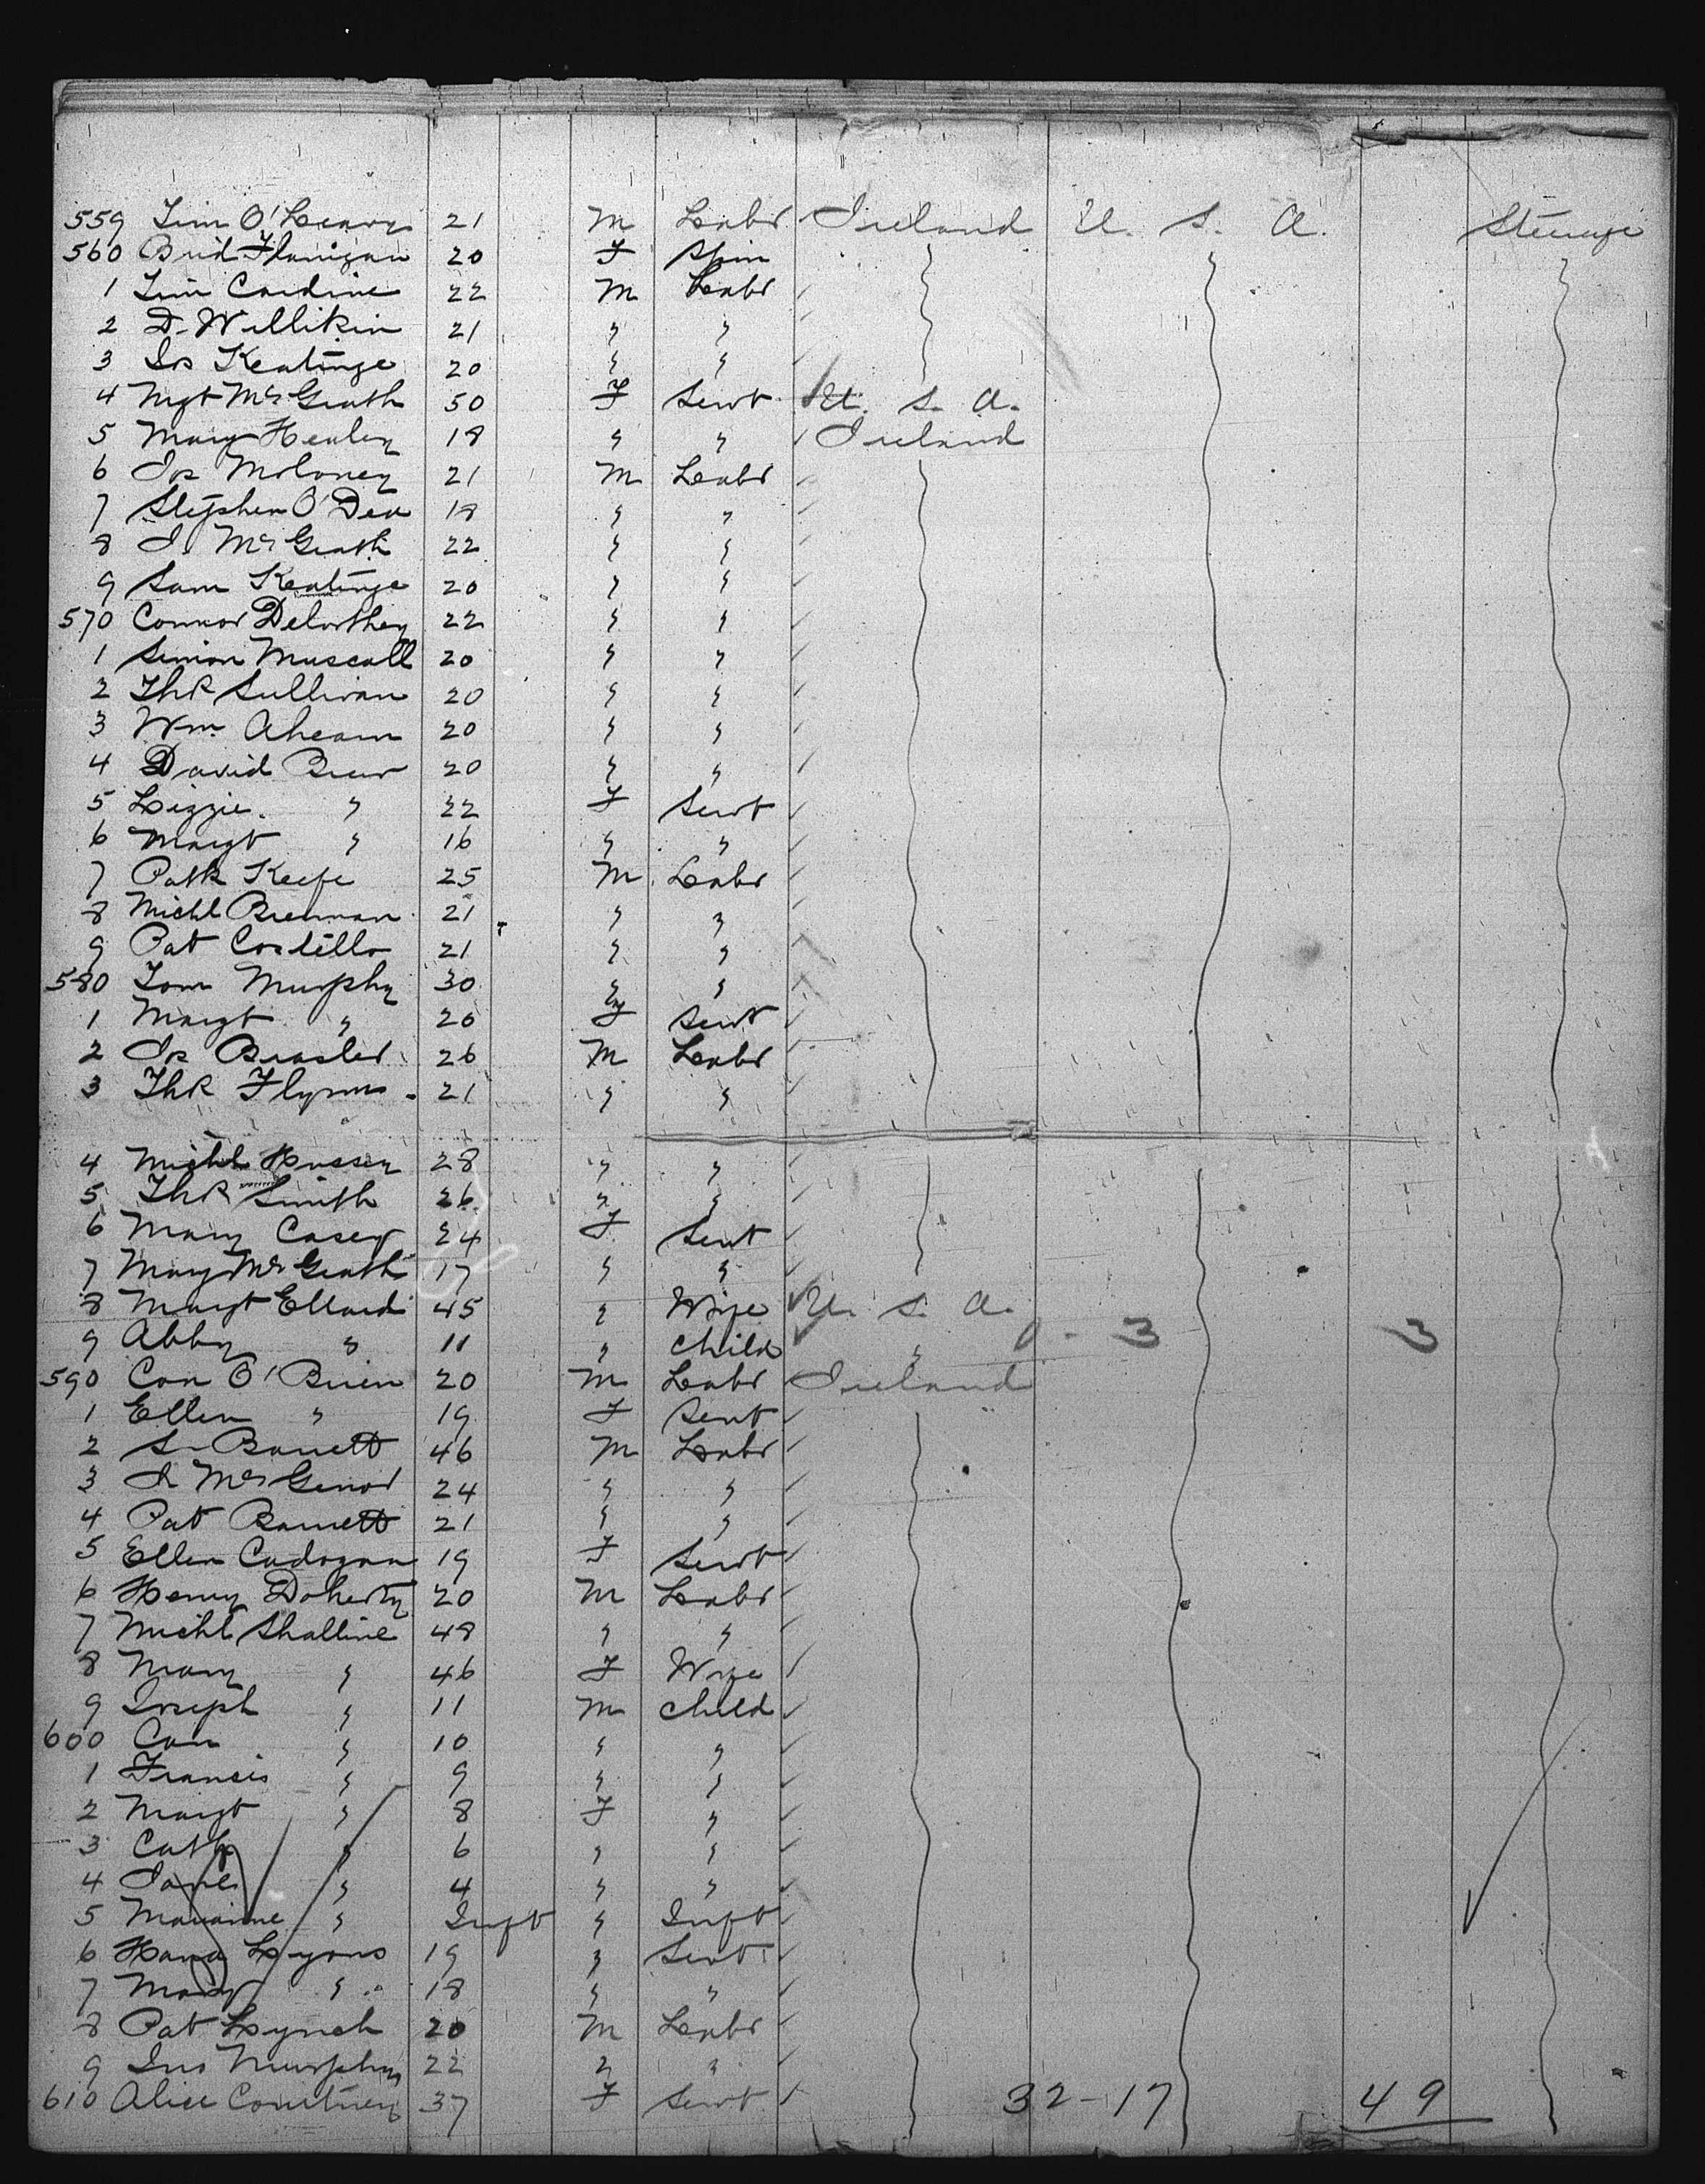 559 Tim O'Leary 21 M Labr Ireland U. S. A. Steerage
560 Brid Flanigan 20 F Spin
1 Tim Cardine 22 M Labr
2 D. Willikin 21 " "
3 Jos Keatinge 20 " "
4 Mgt McGrath 50 F Servt U. S. A.
5 Mary Healey 18 " " Ireland
6 Jos Moloney 21 M Labr
7 Stephen O'Dea 18 " "
8 J. McGrath 22 " "
9 Sam Keatinge 20 " "
570 Connor Delorthey 22 " "
1 Simon Muscall 20 " "
2 Ths Sullivan 20 " "
3 Wm Ahearn 20 " "
4 David Brew 20 " "
5 Lizzie " 22 F Servt
6 Margt " 16 " "
7 Patk Keefe 25 M Labr
8 Michl Brennan 21 " "
9 Pat Costillo 21 " "
580 Tom Murphy 30 " "
1 Margt " 20 F Servt
2 Jos Brasler 26 M Labr
3 Ths Flynn 21 " "
4 Michl Hussey 28 " "
5 Ths Smith 26 " "
6 Mary Casey 24 F Servt
7 Mary McGrath 17 " "
8 Margt Ellard 45 " Wife U. S. A.
9 Abby " 11 " Child " - 3 3
590 Con O'Brien 20 M Labr Ireland
1 Ellen " 19 F Servt
2 S. Barrett 46 M Labr
3 J. 24 " "
4 Pat Barrett 21 " "
5 Ellen Cadogan 19 F Servt
6 Henry Doherty 20 M Labr
7 Michl Shalline 48 " "
8 Mary " 46 F Wife
9 Joseph " 11 M Child
600 Con " 10 " "
1 Francis " 9 " "
2 Margt " 8 F "
3 Cath " 6 " "
4 Jane " 4 " "
5 Marainne " Inft " Inft
6 Hana Lyons 19 " Servt
7 Mary " 18 " "
8 Pat Lynch 20 M Labr
9 Jno Murphy 22 " "
610 Alice Courtney 37 F Servt 32-17 49